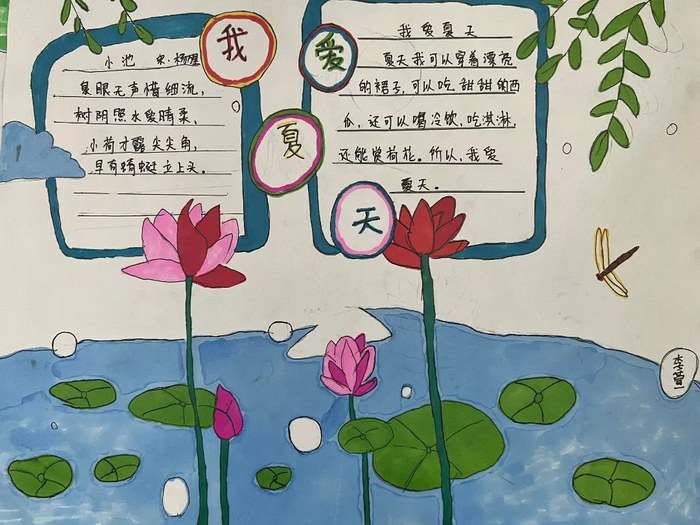 我
爱
夏
天
小池 宋·杨万里
泉眼无声惜细流，
树阴照水爱晴柔。
小荷才露尖尖角，
早有蜻蜓立上头。
我爱夏天
夏天我可以穿着漂亮
的裙子，可以吃甜甜的西
瓜，还可以喝冷饮，吃淇淋，
还能赏荷花。所以，我爱
夏天。